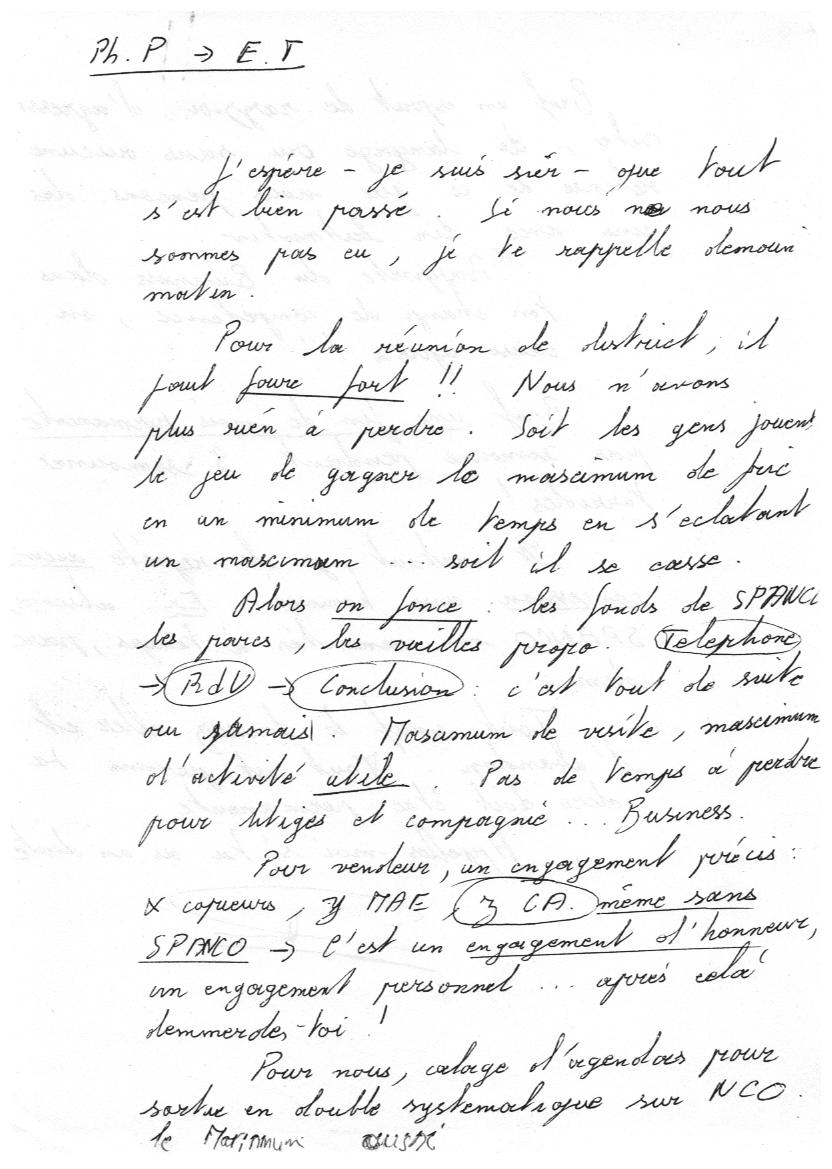 Ph. P → E. T
J'espère - je suis sûr - que tout
s'est bien passé. Si nous ne nous
sommes pas eu, je te rappelle demain
matin.
Pour la réunion de district, il
faut faire fort !! Nous n'avons
plus rien à perdre. Soit les gens jouent
le jeu de gagner le maximum de fric
en un minimum de temps en s'eclatant
un maximum ... soit il se casse.
Alors on fonce : les fonds de SPANCO
les parcs, les vieilles propo. Telephone
→ RdV → Conclusion : c'est tout de suite
ou jamais. Maximum de visite, maximum
d'activité utile. Pas de temps à perdre
pour litiges et compagnie ... Business.
Pour vendeur, un engagement précis :
x copieurs, y MAE, z CA. même sans
SPANCO → C'est un engagement d'honneur,
un engagement personnel ... après celà
demmerdes-toi !
Pour nous, calage d'agendas pour
sortie en double systematique sur NCO.
le Maximum aussi